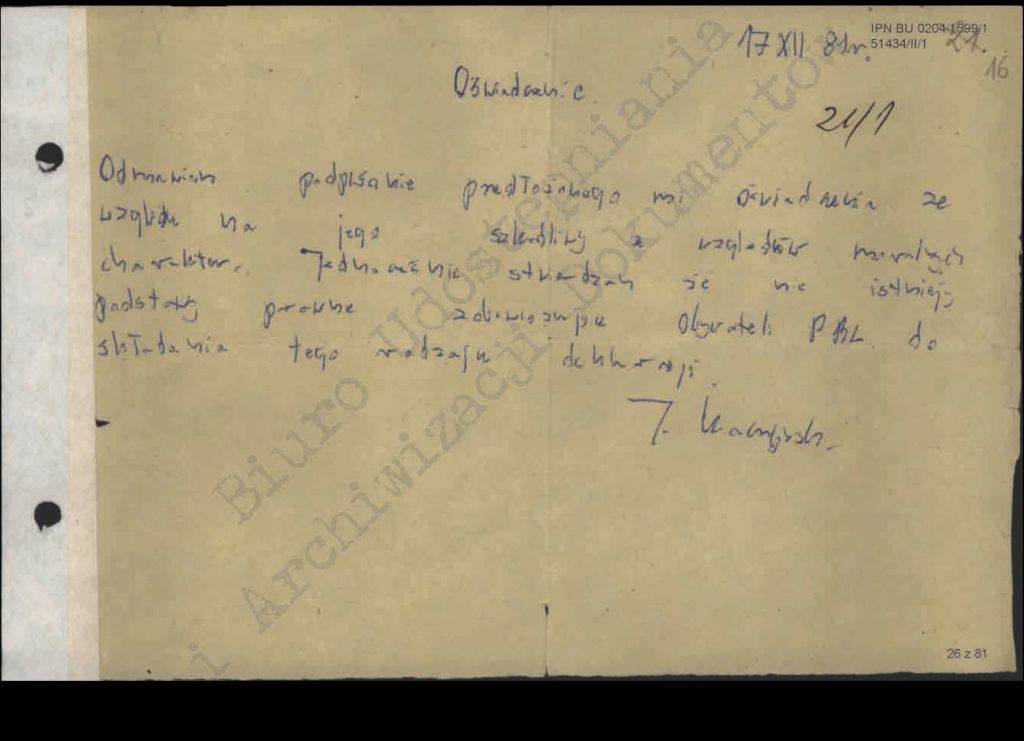 IPN BU 0204/1599/1
51434/II/1
17 XII 81r.
21.
16
Oświadczenie
21/1
Odmawiam podpisanie przedłożonego mi oświadczenia ze
względu na jego szkodliwy z względów moralnych
charakter. Jednocześnie stwierdzam że nie istnieją
podstawy prawne zobowiązujące Obywateli PRL do
składania tego rodzaju deklaracji.
J. Kaczyński.
Biuro Udostępniania
i Archiwizacji Dokumentów
26 z 81